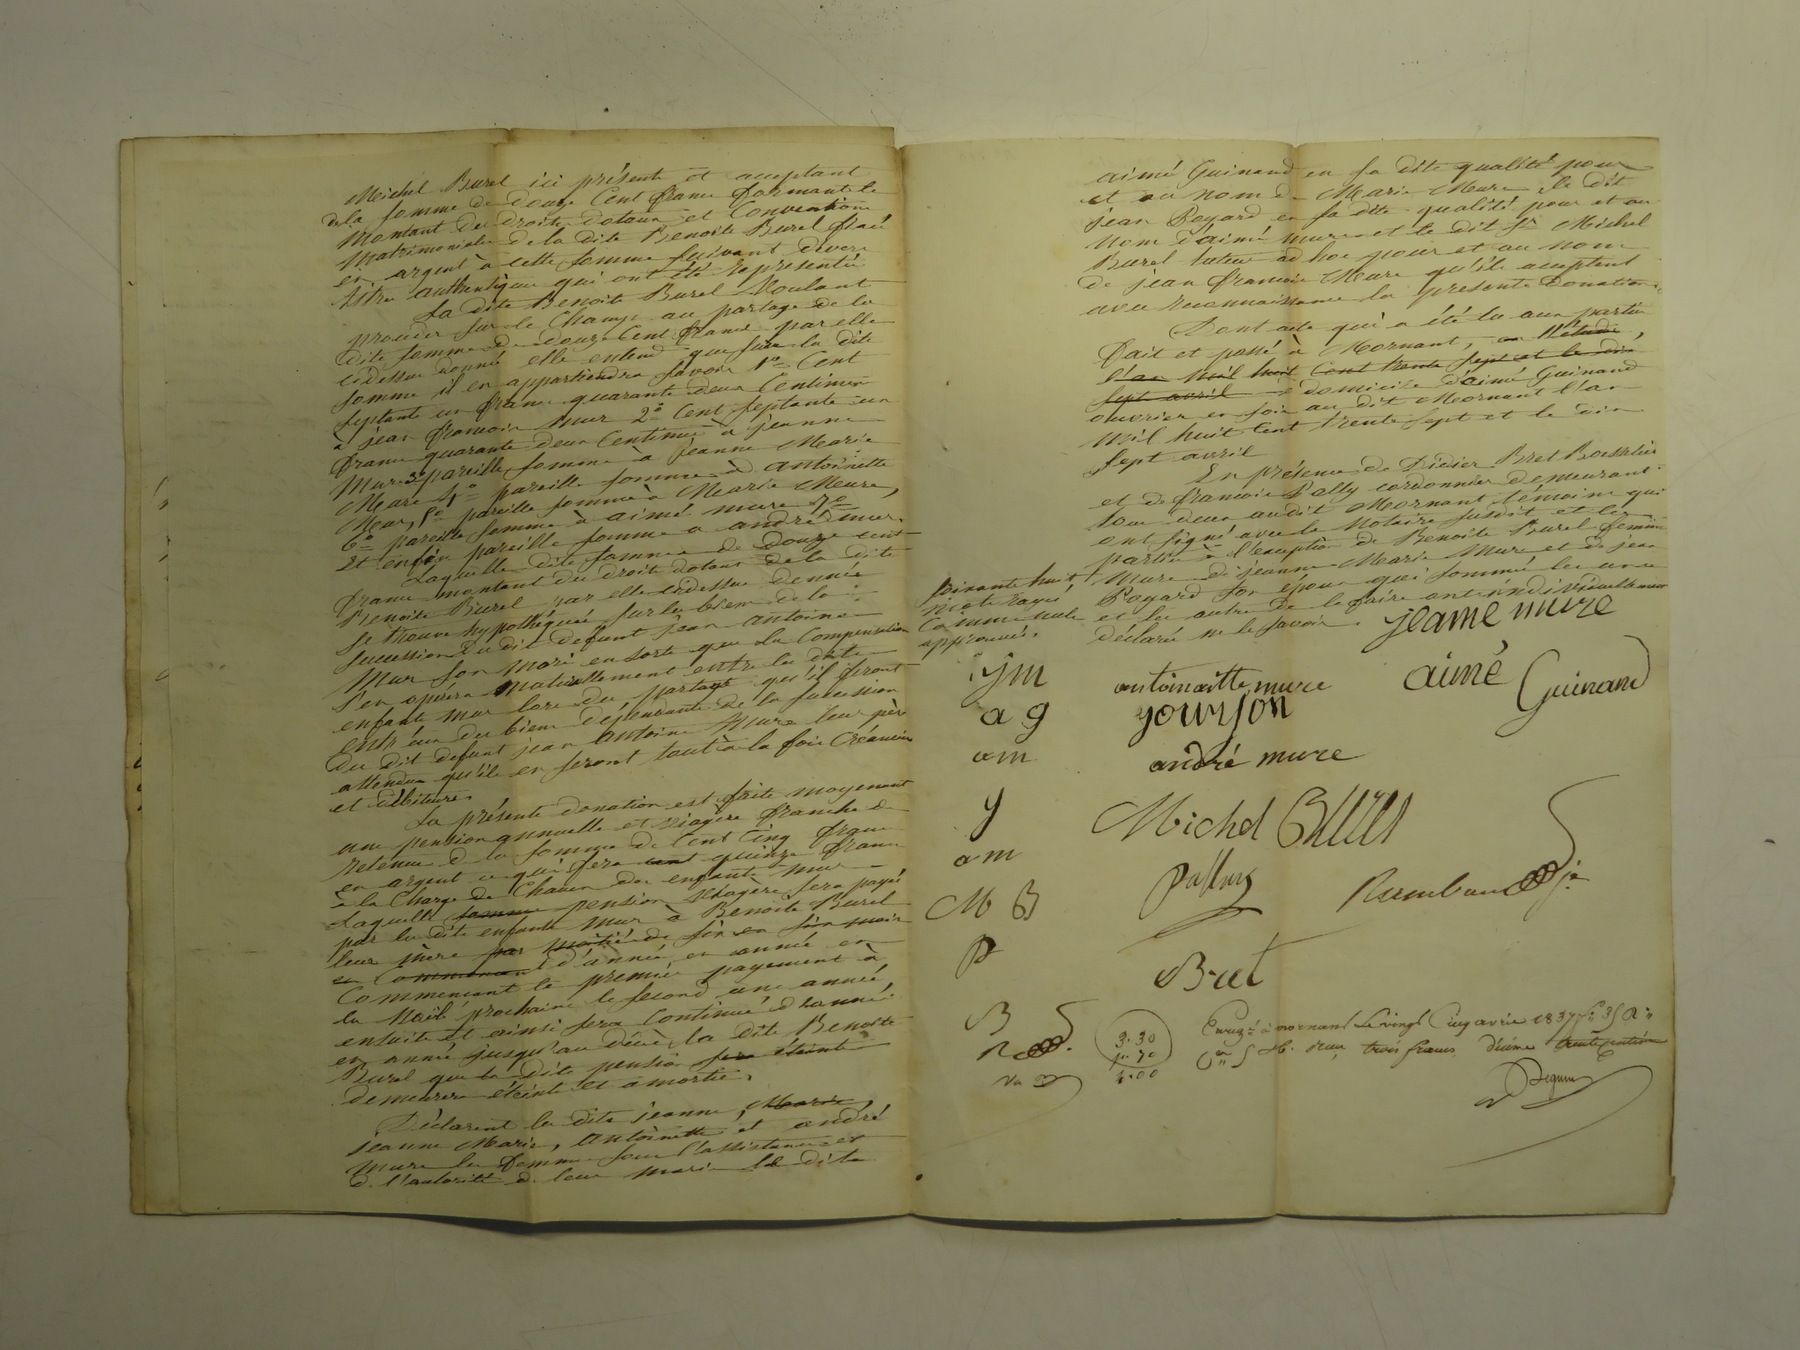 Michel Burel ici présente et acceptant
de la somme de douze Cent francs formant le
Montant des droits dotaux et Conventions
Matrimoniales de la dite Benoite Burel fixé
en argent à cette somme suivant divers
titres authentiques qui ont été représentés
La dite Benoite Burel Voulant
procéder sur le Champ au partage de la
dite somme de douze Cent francs par elle
cidessus donné elle entend que sur la dite
somme il en appartiendra savoir 1º Cent
septante un francs quarante deux Centimes
à jean francois Mure 2º Cent septante un
francs quarante deux Centimes à jeanne
Mure 3º pareille somme à jeanne Marie
Mure 4º pareille somme à antoinette
Mure, 5º pareille somme à Marie Mure,
6º pareille somme à aimé mure 7º
Et enfin pareille somme a andré mure.
Laquelle dite somme de douze cent
francs montant des droits dotaux de la dite
Benoite Burel par elle cidessus donnée
se trouve hypothéquée sur les biens de la
succession du dit défunt jean antoine
Mure son mari en sorte que la Compensation
s'en opérera naturellement entre les dits
enfants mure lors du partage qu'il feront
entr'eux des biens dépendants de la succession
du dit défunt jean antoine Mure leur père
attendu qu'ils en seront tout à la fois Créanciers
et débiteurs.
La présente donation est faite moyenant
une pension annuelle et viagère franche de
retenue de la somme de Cent Cinq francs
en argent ce qui fera cent quinze francs
à la Charge de Chacun des enfants Mure
Laquelle somme pension viagère sera payée
par les dits enfants Mure à Benoite Burel
leur mère par moitié de six en six mois
en Commencant d'année en année en
Commencant le premier payement à
la Noël prochaine le second une année
ensuite et ainsi sera Continué d'année
en année jusqu'au décès la dite Benoite
Burel que la dite pension sera éteinte
demeurera éteinte et amortie.
Déclarent les dits jeanne, Marie,
jeanne Marie, antoinette et andré
Mure les femmes sous l'assistance et
de l'autorité de leur maris les dits
aimé Guinand en sa dite qualité pour
et au nom de Marie Mure, le dit
jean Poyard en sa dite qualité pour et au
nom d'aimé mure et le dit Sr Michel
Burel tuteur ad hoc pour et au nom
de jean francois Mure qu'ils acceptent
avec reconnaissance la présente Donation.
Dont acte qui a été lu aux parties
fait et passé à Mornant, en l'étude,
l'an mil huit Cent trente sept et le dix
sept avril domicile d'aimé Guinand
ouvrier en soie au dit Mornant l'an
mil huit Cent trente sept et le dix
sept avril
En présence de Didier Bret Bourrelier
et de francois Pally cordonnier demeurant
tous deux au dit Mornant témoins qui
ont signé avec le Notaire susdit et les
parties à l'exception de Benoite Burel femme
Mure de jeanne Marie Mure et de jean
Poyard son époux qui sommé les uns
et les autres de le faire ont individuellement
déclaré ne le savoir.
soixante huit
mots rayés
Comme nuls
approuvés.
jeanne mure
jm antoinaitte mure aimé Guinand
a g jourjon
am andré mure
y Michel Burel
am
M B Pallay Rambaud
P
Bret
B
R
3.30
1.70
Enregé à mornant le vingt Cinq avril 1837 fo 35